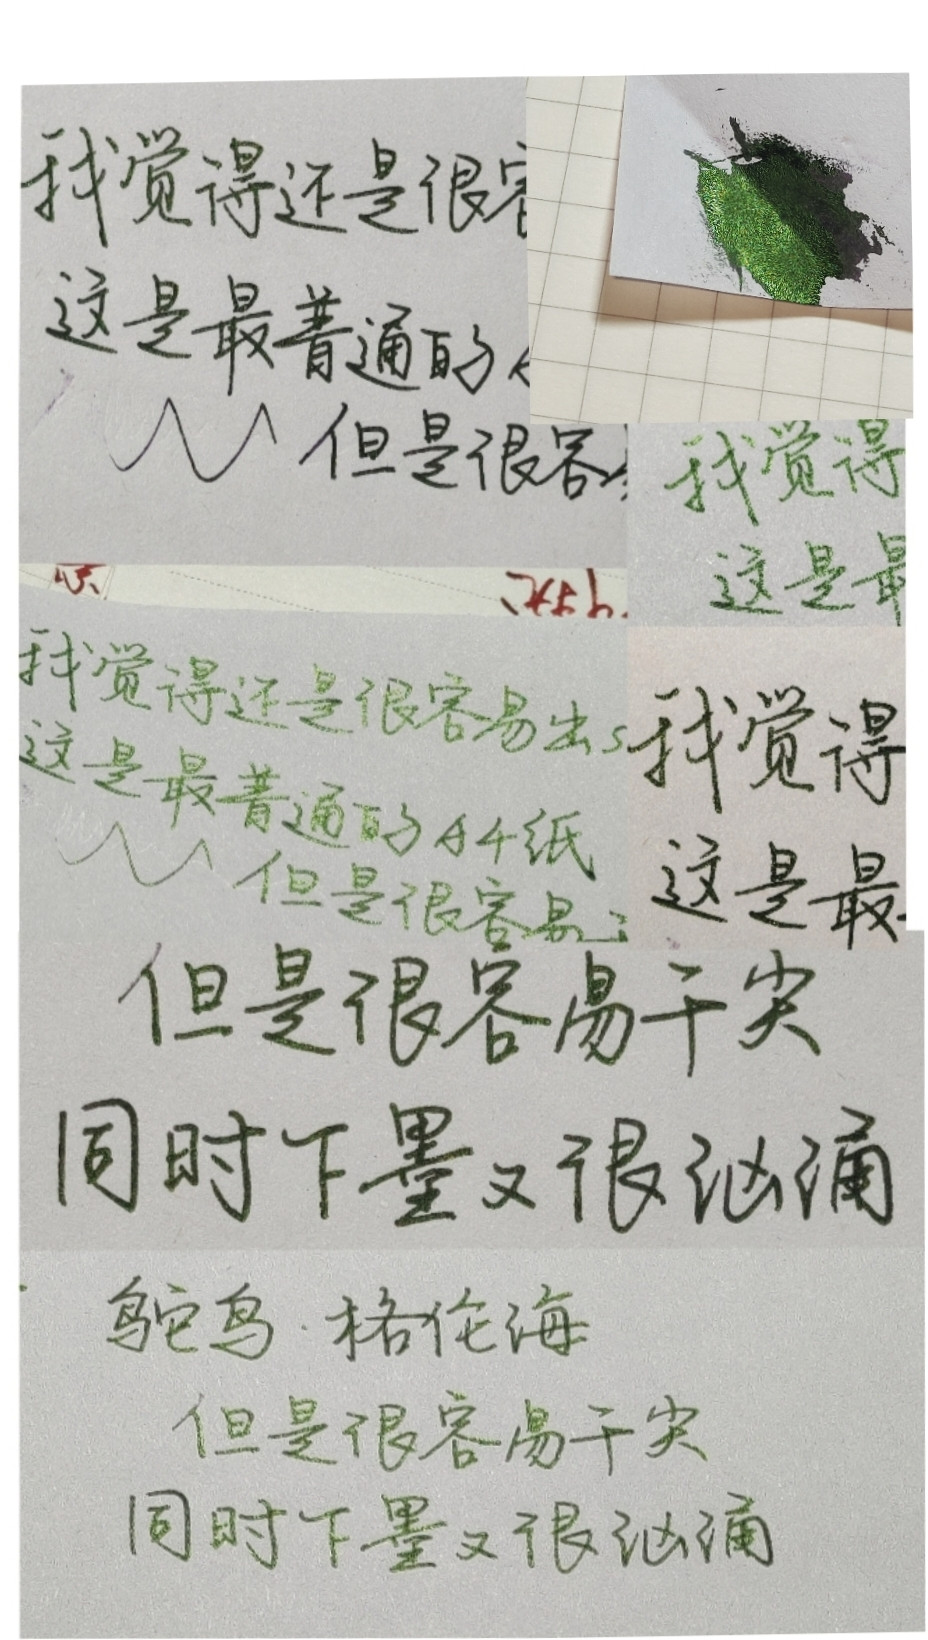 我觉得还是很容
这是最普通的
但是很容
我觉得
这是最
我觉得还是很容易出s
这是最普通的A4纸
但是很容易
我觉得
这是最
但是很容易干尖
同时下墨又很汹涌
鸵鸟·格伦海
但是很容易干尖
同时下墨又很汹涌